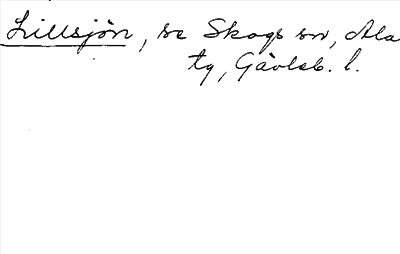 Lillsjön, se Skogs sn, Ala
tg, Gävleb. l.